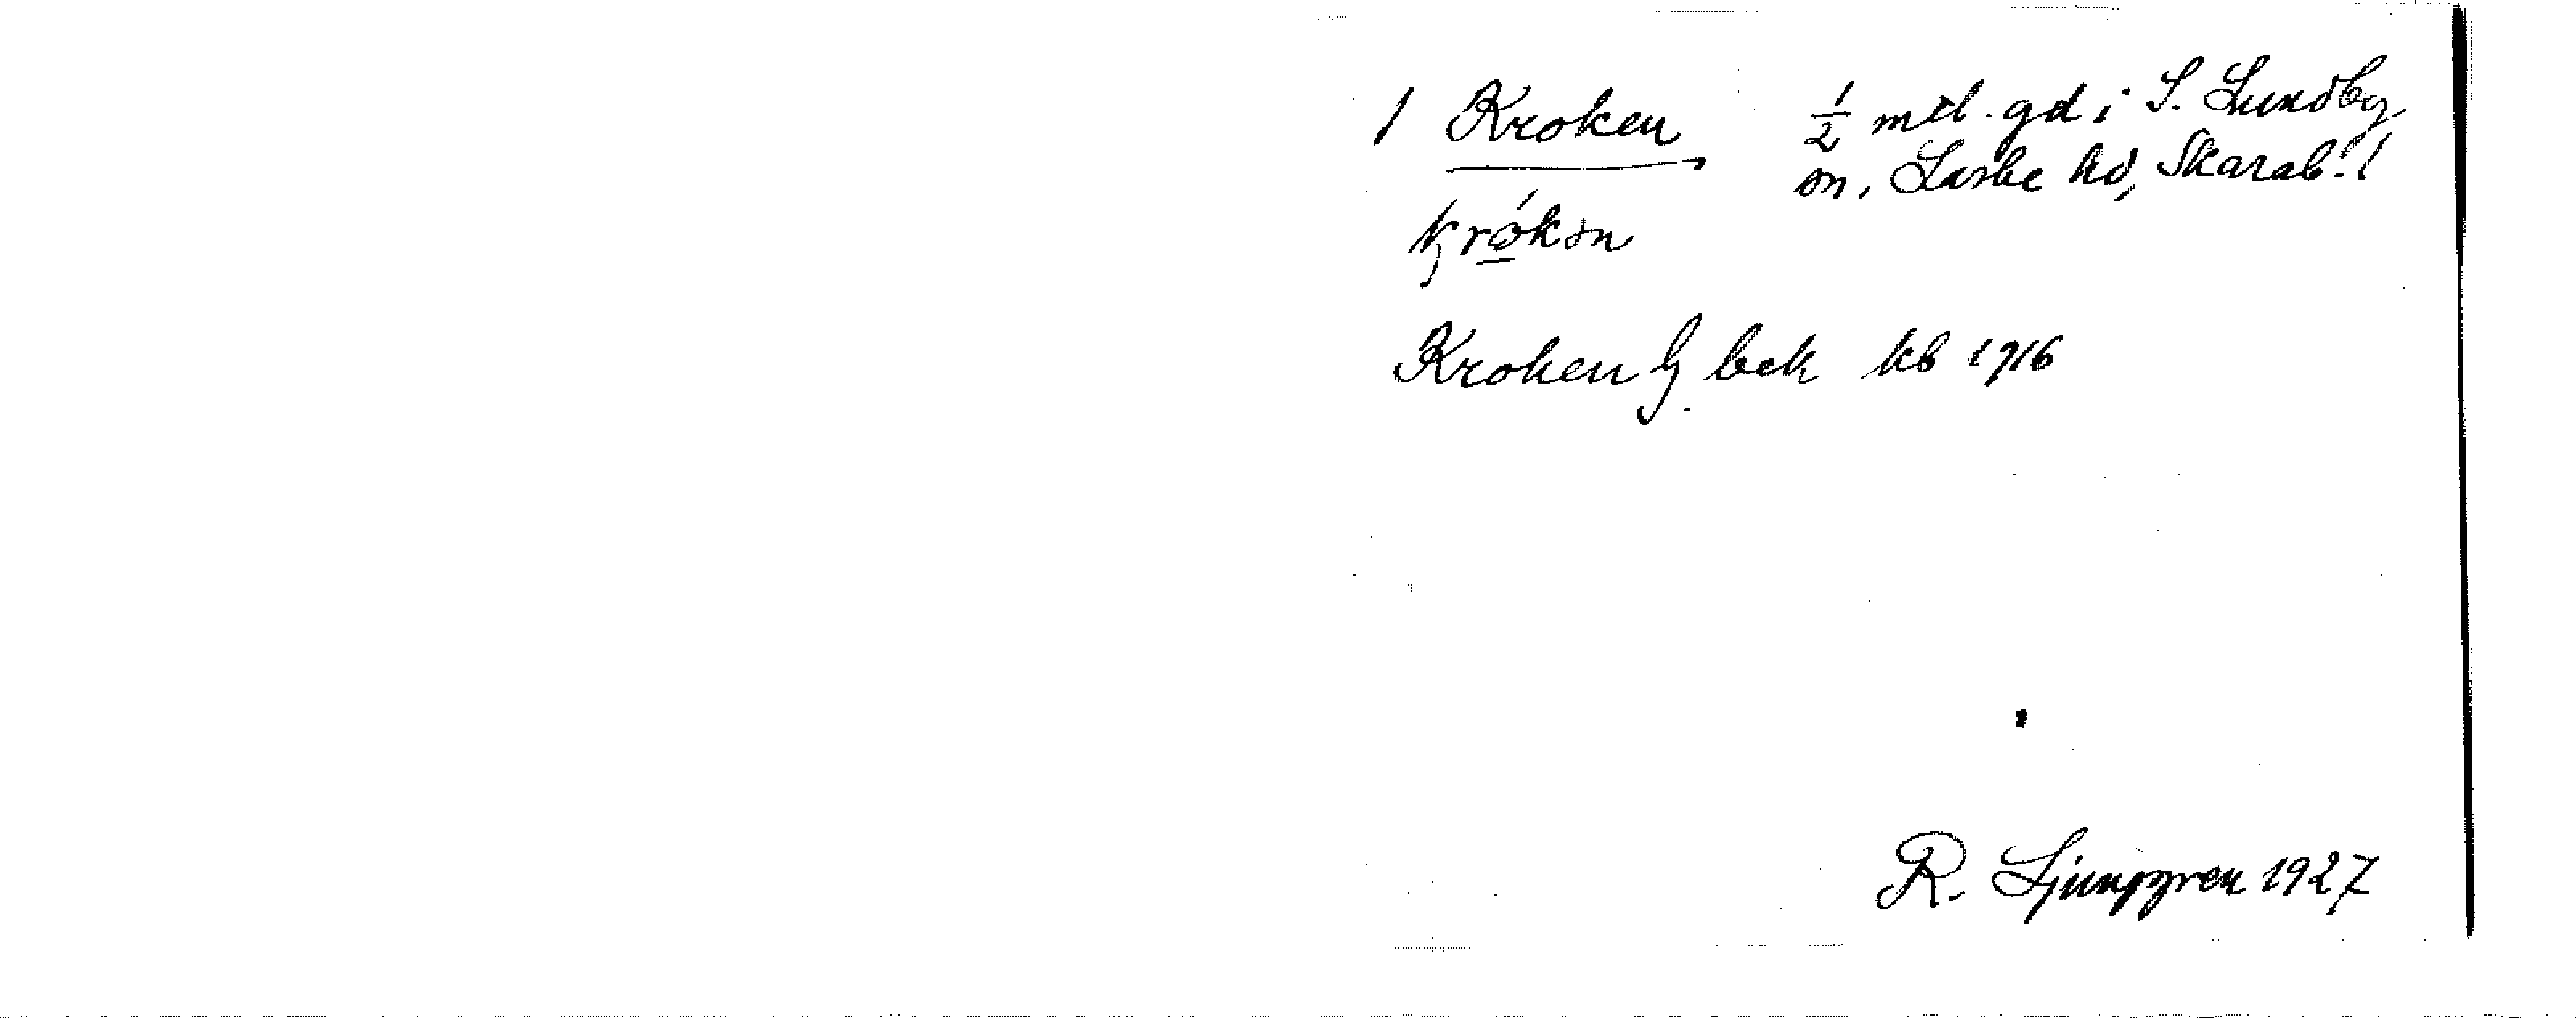 1 Kroken ½ mtl. gd i S. Lundby
sn, Laske hd, Skarab. l
Kroken bek kb 1716
R. Ljunggren 1927